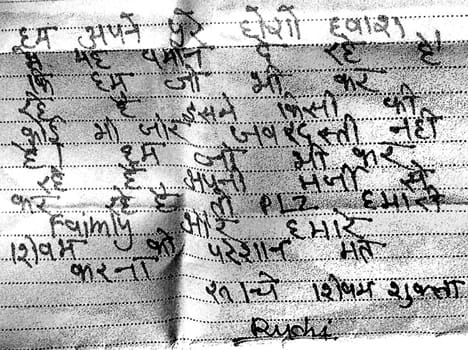 हम अपने पुरे होशो हवास
में यह बयान दे रहे है!
कि हम जो भी कर
रहे है इसमे किसी की
कोई भी जोर जबरदस्ती नही
है। हम जो भी कर
रहे है अपनी मर्जी से
कर रहे है तो PLZ हमारी
Faimly और हमारे
शिवम को परेशान मत
करना
रूचि शिवम शुक्ला
Ruchi